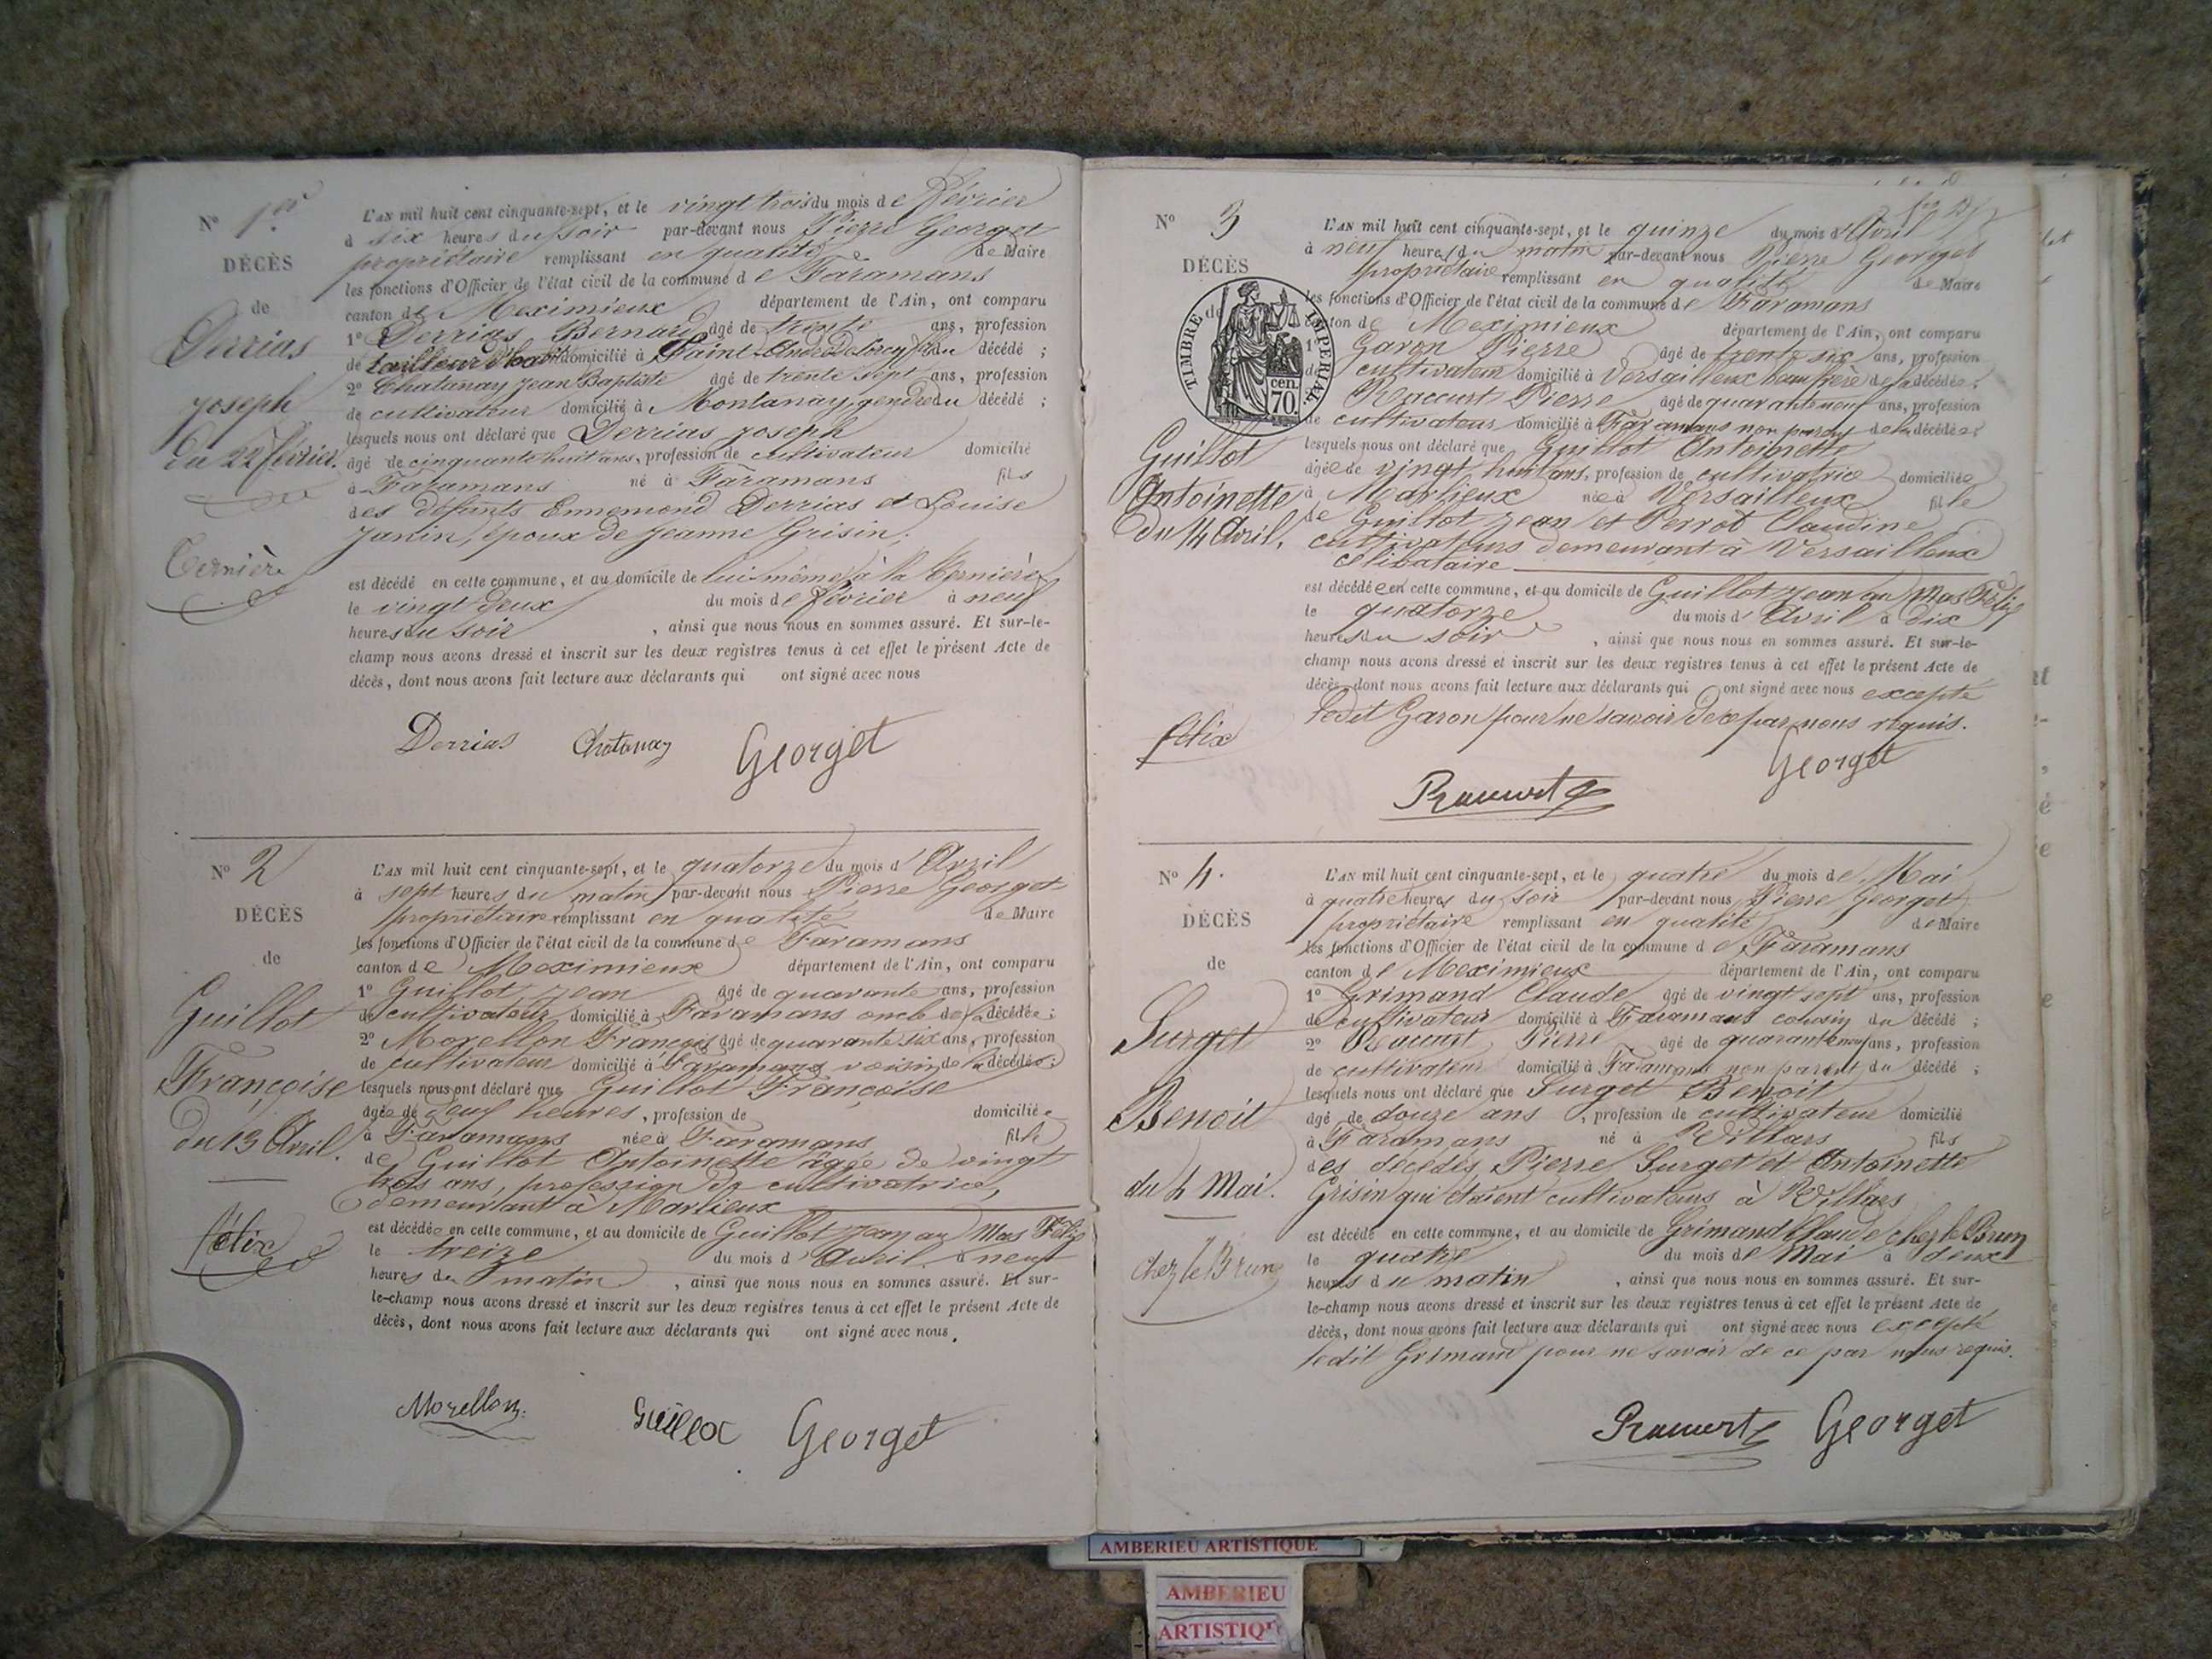 N° 1er
DÉCÈS
de
Derrias
Joseph
du 22 février.
Bernière
L'AN mil huit cent cinquante-sept, et le vingt trois du mois de Février
à six heures du soir par-devant nous Pierre Georget
propriétaire remplissant en qualité de Maire
les fonctions d'Officier de l'état civil de la commune de Faramans
canton de Meximieux département de l'Ain, ont comparu
1° Derrias Bernard âgé de trente ans, profession
de tailleur d'habits domicilié à Saint-André de Corcy fils du décédé ;
2° Chatanay Jean Baptiste âgé de trente sept ans, profession
de cultivateur domicilié à Montanay, gendre du décédé ;
lesquels nous ont déclaré que Derrias Joseph
âgé de cinquante huit ans, profession de cultivateur domicilié
à Faramans né à Faramans fils
des défunts Ennemond Derrias et Louise
Janin, époux de Jeanne Grisin,
est décédé en cette commune, et au domicile de lui même à la Bernière
le vingt deux du mois de février à neuf
heures du soir , ainsi que nous nous en sommes assuré. Et sur-le-
champ nous avons dressé et inscrit sur les deux registres tenus à cet effet le présent Acte de
décès, dont nous avons fait lecture aux déclarants qui ont signé avec nous
Derrias Chatanay Georget
N° 2
DÉCÈS
de
Guillot
Françoise
du 13 Avril.
félix
L'AN mil huit cent cinquante-sept, et le quatorze du mois d'Avril
à sept heures du matin par-devant nous Pierre Georget
propriétaire remplissant en qualité de Maire
les fonctions d'Officier de l'état civil de la commune de Faramans
canton de Meximieux département de l'Ain, ont comparu
1° Guillot Jean âgé de quarante ans, profession
de cultivateur domicilié à Faramans oncle de la décédée ;
2° Morellon François âgé de quarante six ans, profession
de cultivateur domicilié à Faramans voisin de la décédée ;
lesquels nous ont déclaré que Guillot Françoise
âgée de neuf heures, profession de domiciliée
à Faramans née à Faramans fille
de Guillot Antoinette âgée de vingt
huit ans, profession de cultivatrice,
demeurant à Marlieux
est décédée en cette commune, et au domicile de Guillot Jean au Mas Félix
le treize du mois d'Avril à neuf
heures du matin , ainsi que nous nous en sommes assuré. Et sur-
le-champ nous avons dressé et inscrit sur les deux registres tenus à cet effet le présent Acte de
décès, dont nous avons fait lecture aux déclarants qui ont signé avec nous.
Morellon Guillot Georget
N° 3
DÉCÈS
de
TIMBRE IMPERIAL
70 cen.
Guillot
Antoinette
du 14 Avril.
félix
L'AN mil huit cent cinquante-sept, et le quinze du mois d'Avril
à neuf heures du matin par-devant nous Pierre Georget
propriétaire remplissant en qualité de Maire
les fonctions d'Officier de l'état civil de la commune de Faramans
canton de Meximieux département de l'Ain, ont comparu
1° Garon Pierre âgé de trente six ans, profession
de cultivateur domicilié à Versailleux beau frère de la décédée ;
Raccurt Pierre âgé de quarante neuf ans, profession
de cultivateur domicilié à Faramans non parent de la décédée ;
lesquels nous ont déclaré que Guillot Antoinette
âgée de vingt huit ans, profession de cultivatrice domiciliée
à Marlieux née à Versailleux fille
de Guillot Jean et Perrot Claudine
cultivateurs demeurant à Versailleux
célibataire
est décédée en cette commune, et au domicile de Guillot Jean au Mas Félix
le quatorze du mois d'Avril à dix
heures du soir , ainsi que nous nous en sommes assuré. Et sur-le-
champ nous avons dressé et inscrit sur les deux registres tenus à cet effet le présent Acte de
décès, dont nous avons fait lecture aux déclarants qui ont signé avec nous excepté
ledit Garon pour ne savoir de ce par nous requis.
Georget
Raccurt
N° 4.
DÉCÈS
de
Surget
Benoit
du 4 Mai.
chez le Brun
L'AN mil huit cent cinquante-sept, et le quatre du mois de Mai
à quatre heures du soir par-devant nous Pierre Georget
propriétaire remplissant en qualité de Maire
les fonctions d'Officier de l'état civil de la commune de Faramans
canton de Meximieux département de l'Ain, ont comparu
1° Grimand Claude âgé de vingt sept ans, profession
de cultivateur domicilié à Faramans cousin du décédé ;
2° Raccurt Pierre âgé de quarante neuf ans, profession
de cultivateur domicilié à Faramans non parent du décédé ;
lesquels nous ont déclaré que Surget Benoit
âgé de douze ans, profession de cultivateur domicilié
à Faramans né à Villars fils
des décédés Pierre Surget et Antoinette
Grisin qui étaient cultivateurs à Villars
est décédé en cette commune, et au domicile de Grimand Claude chez le Brun
le quatre du mois de Mai à deux
heures du matin , ainsi que nous nous en sommes assuré. Et sur-
le-champ nous avons dressé et inscrit sur les deux registres tenus à cet effet le présent Acte de
décès, dont nous avons fait lecture aux déclarants qui ont signé avec nous excepté
ledit Grimand pour ne savoir de ce par nous requis.
Raccurt Georget
AMBERIEU ARTISTIQUE
AMBERIEU
ARTISTIQU